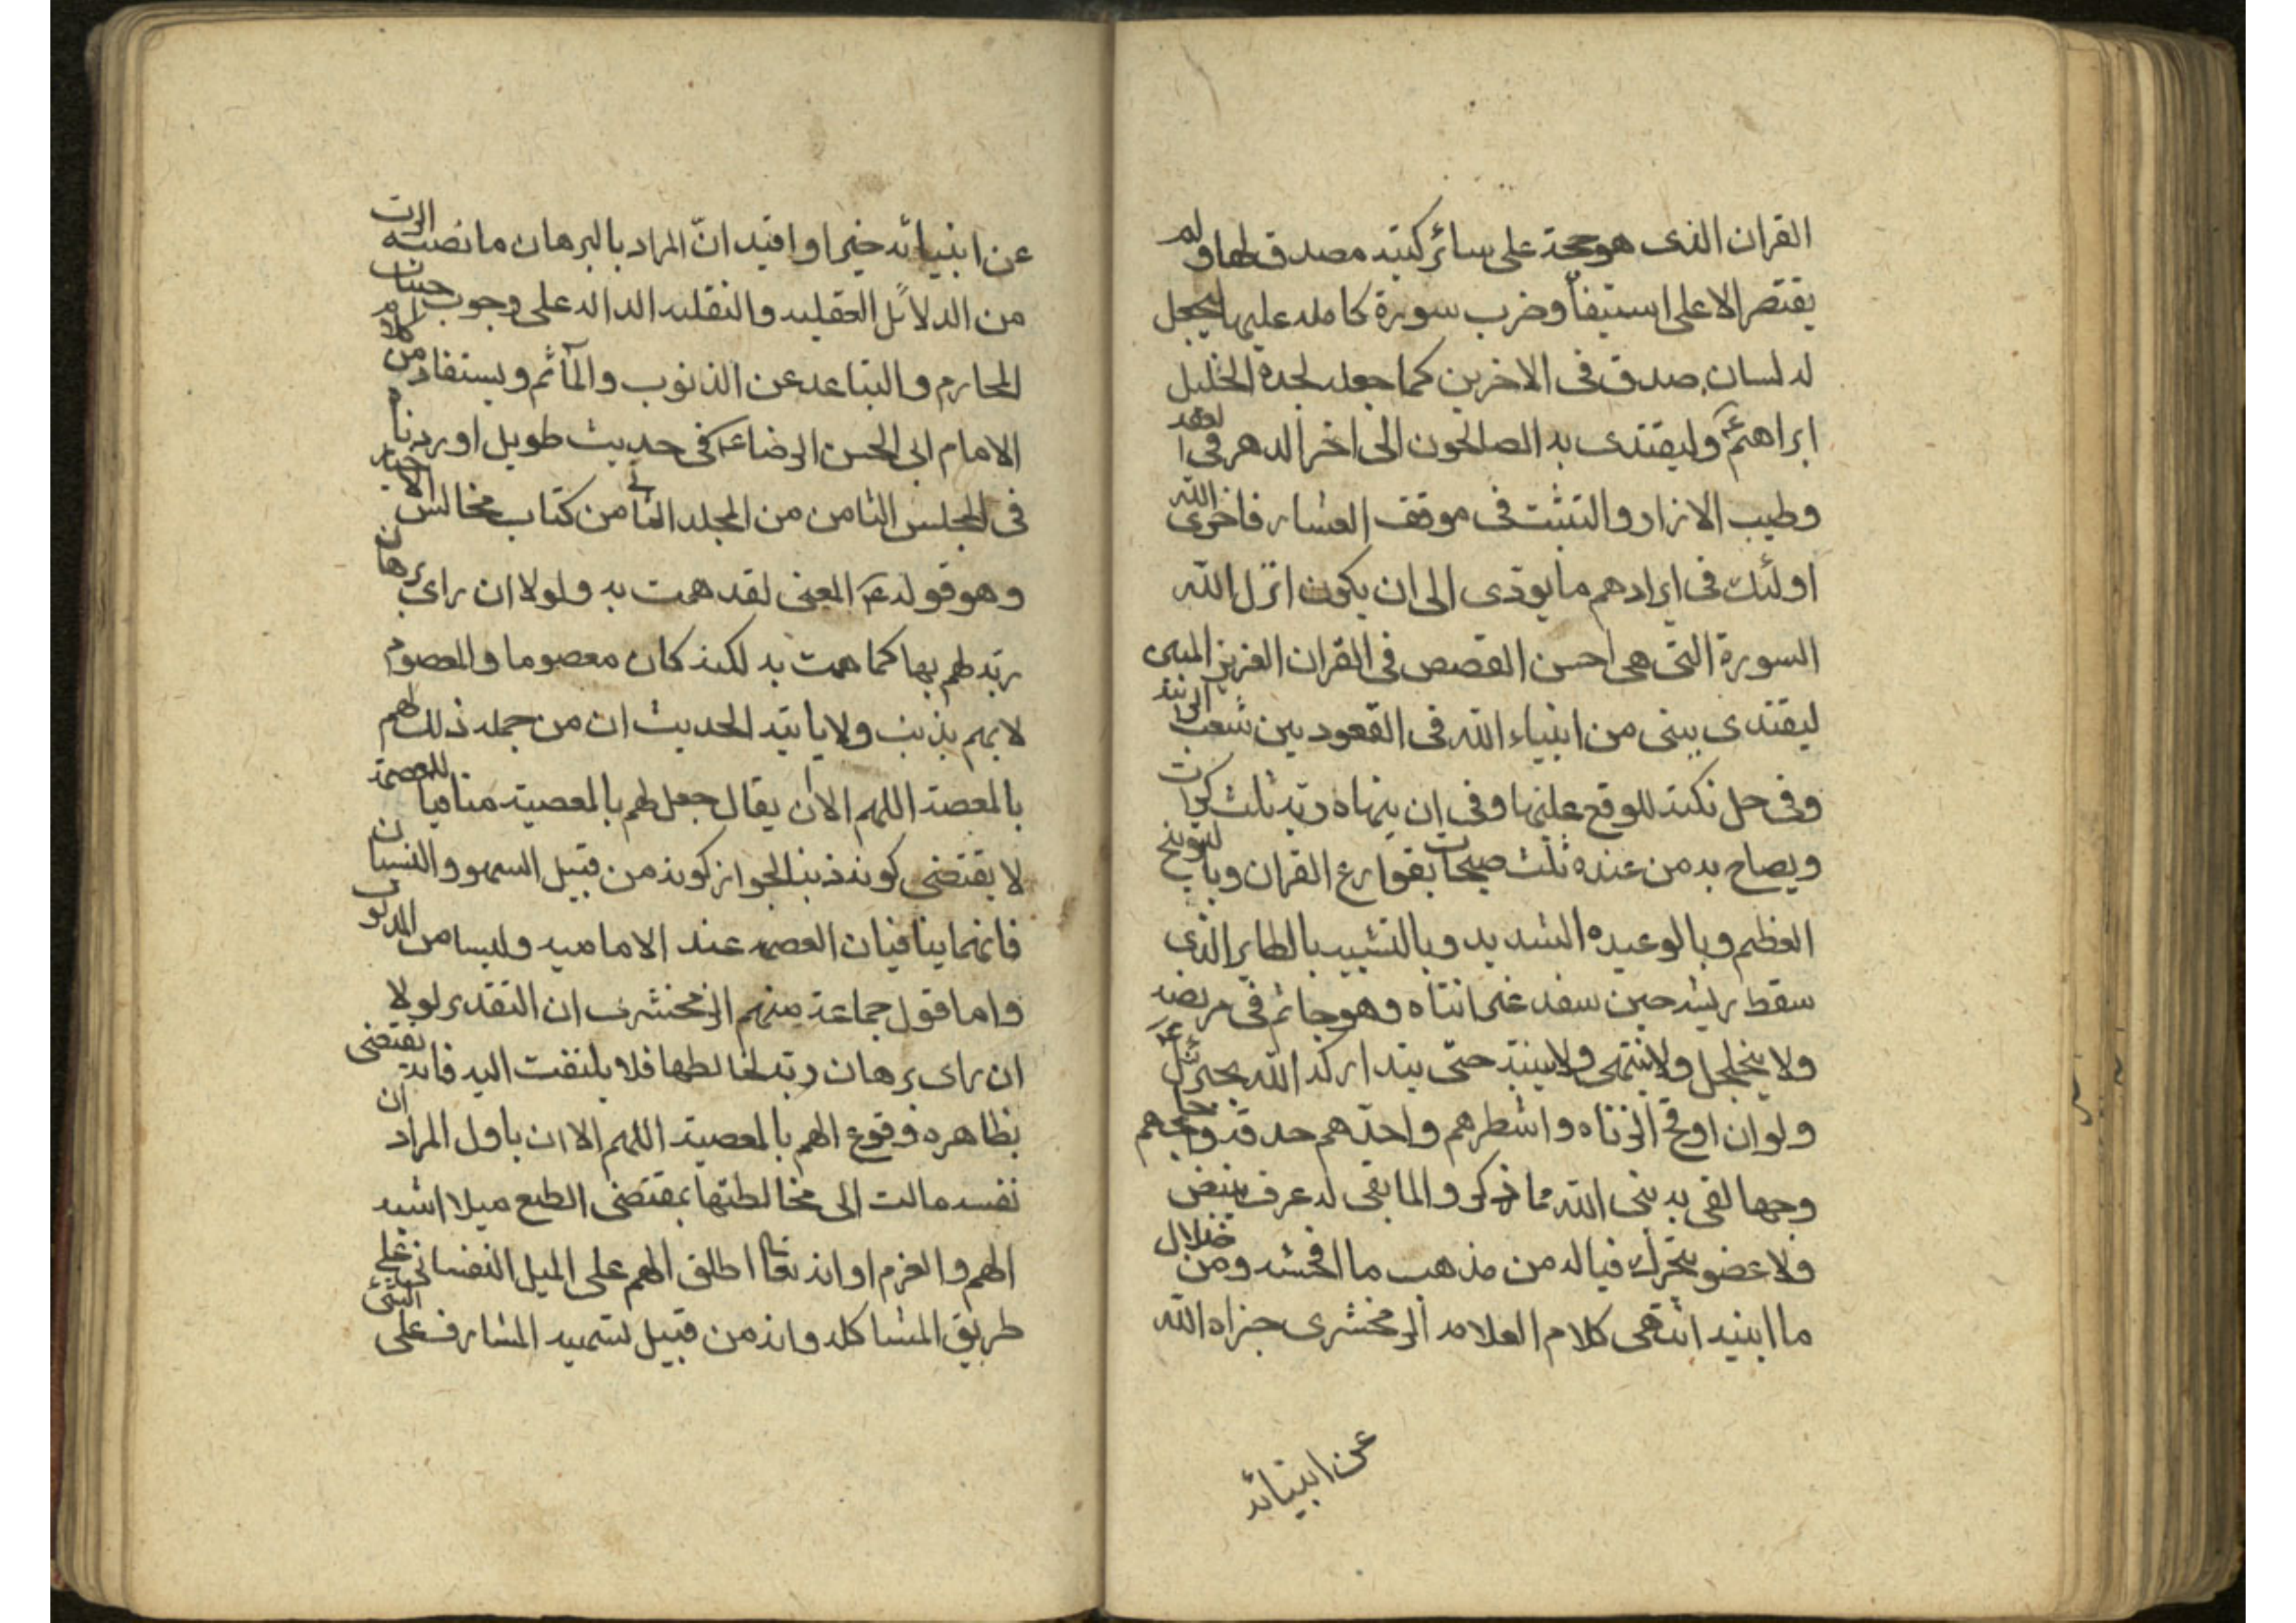 القران الذى هو حجة على سائر كتبه مصدق لها ولم
يقتصر الا على استيفاء وضرب سورة كامله عليها ليجعل
له لسان صدق فى الاخرين كما جعله لجده الخليل
ابراهيمؑ وليقتدى به الصالحون الى اخر الدهر فى العفة
وطيب الازار والتثبت فى موقف العثار فاخزى الله
اولئك فى ايرادهم ما يودى الى ان يكون انزل الله
السورة التى هى احسن القصص فى القران العزيز المبين
ليقتدى بنبى من انبياء الله فى القعود بين شعب الزانية
وفى حل تكته للوقوع عليها وفى ان ينهاه ربه ثلث كرات
ويصاح به من عنده ثلث صيحات بقوارع القران وبالتوبيخ
العظيم وبالوعيده الشديد وبالتشبيب بالطاير الذى
سقط ريشه حين سفد غير انثاه وهو جاثم فى مربضه
ولا يتحلحل ولا ينتهى ولا ينبه حتى يتداركه الله بجبرئيلؑ
ولو ان اوقح الزناه واشطرهم واحدهم حدقة واجلحهم
وجها لقى به نبى الله مما ذكر والما بقى له عرف ينبض
ولا عضو يتحرك فياله من مذهب ما افحشه ومن ضلال
ما ابنيه انتهى كلام العلامه الزمخشرى جزاه الله
عن ابنيائه
عن ابنيائه خيرا وافيد انّ المراد بالبرهان ما نصبه الرب
من الدلائل العقليه والنقليه الداله على وجوب اجتناب
المحارم والتباعد عن الذنوب والمآثم ويستفاد من كلام
الامام ابى الحسن الرضاؑ فى حديث طويل اوردناه
فى المجلس الثامن من المجلد الثانى من كتاب مجالس الاخبار
وهو قولهؑ المعنى لقد همت به ولولا ان راى برهان
ربه لهم بها كما همت به لكنه كان معصوما والمعصوم
لا يهم بذنب ولا ياتيه الحديث ان من جمله ذلك لهم
بالمعصة اللهم الا ان يقال جعل لهم بالمعصية منافيا للعصمة
لا يقتضى كونه ذنبا لجواز كونه من قبيل السهو والنسيان
فانهما ينافيان العصمه عند الاماميه وليسا من الذنوب
واما قول جماعة منهم الزمخشرى ان التقدير لولا
ان راى برهان ربه لخالطها فلا يلتفت اليه فانه يقتضى
بظاهره وقوع الهم بالمعصية اللهم الا ان ياول المراد ان
نفسه مالت الى مخالطتها بمقتضى الطبع ميلا اشبه
الهم والعزم او انه تعا اطلق الهم على الميل النفسانى على
طريق المشاكله وانه من قبيل تسميه المشارف على الشئ